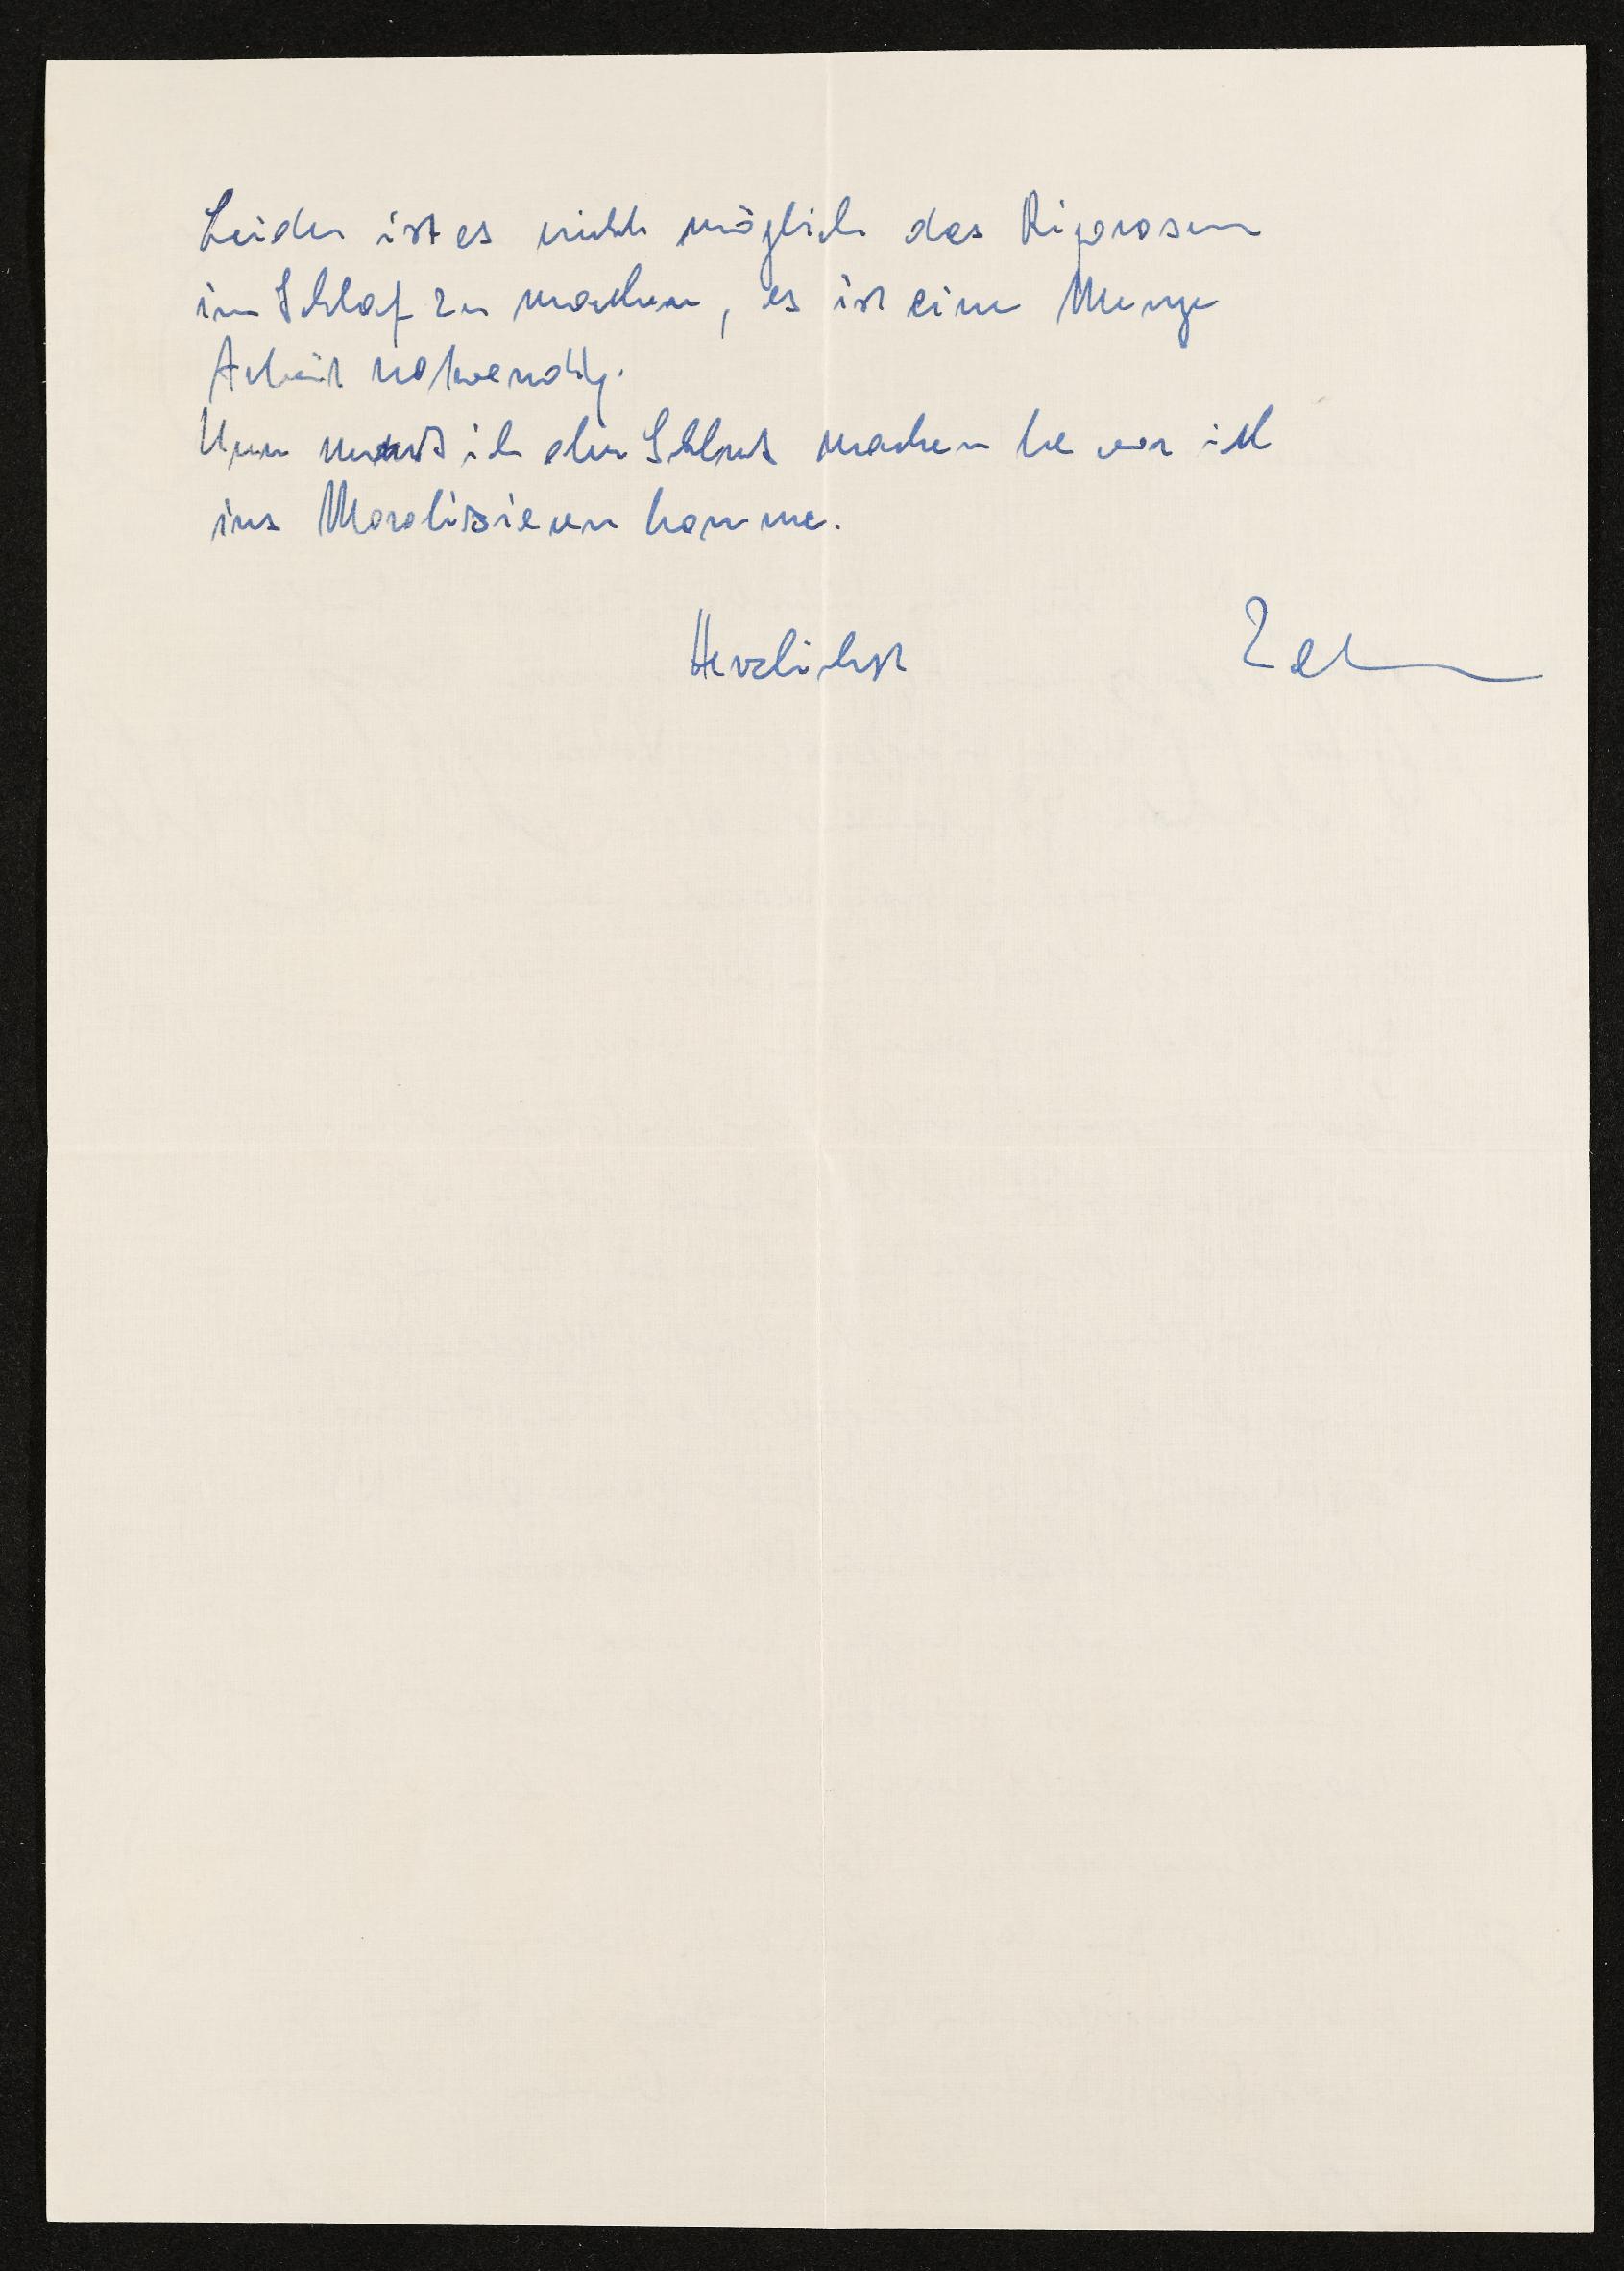 Leider ist es nicht möglich das Rigorosum
im Schlaf zu machen, es ist eine Menge
Arbeit notwendig.
Nun muß ich aber Schluß machen bevor ich
ins Moralisieren komme.
Herzlichst